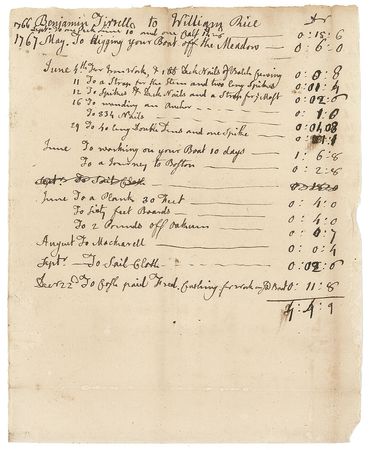 1766 Benjamin Tirrell to William Rice Dr
Sept. To one Deck Iron 10 and one Half lb 0:15:6
1767 May. To Digging your Boat off the Meadow 0:6:0
June To Iron Work, & 188 Deck Nails 0:0:8
11 To a Strap for the Stem and two long Spikes 0:01:4
12 To Spikes & Deck Nails and a Strap for Mast 0:02:6
16 To mending an Anchor
To 334 Nails 0:1:0
29 To 40 long and one Spike
June To working on your Boat 10 days 1:6:8
To a Journey to Boston 0:2:8
Sept. To Sail Cloth
June To a Plank 30 Feet 0:4:0
To Sixty feet Boards 0:4:0
To 2 Pounds off Oakum 0:0:7
August To Mackarell 0:4:0
Sept. To Sail Cloth 0:02:6
Decr 22d To Cash paid Fred. Cushing for work on sd Boat 0:11:8
4:4:9